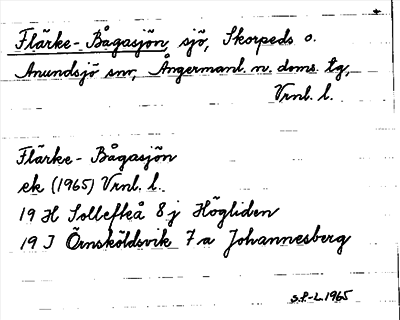 Flärke-Bågasjön, sjö, Skorpeds o.
Anundsjö snr, Ångermanl. n. doms. tg,
Vrnl. l.
Flärke-Bågasjön
ek (1965) Vrnl. l.
19 H Sollefteå 8 j Högliden
19 I Örnsköldsvik 7 a Johannesberg
S.P-L. 1965